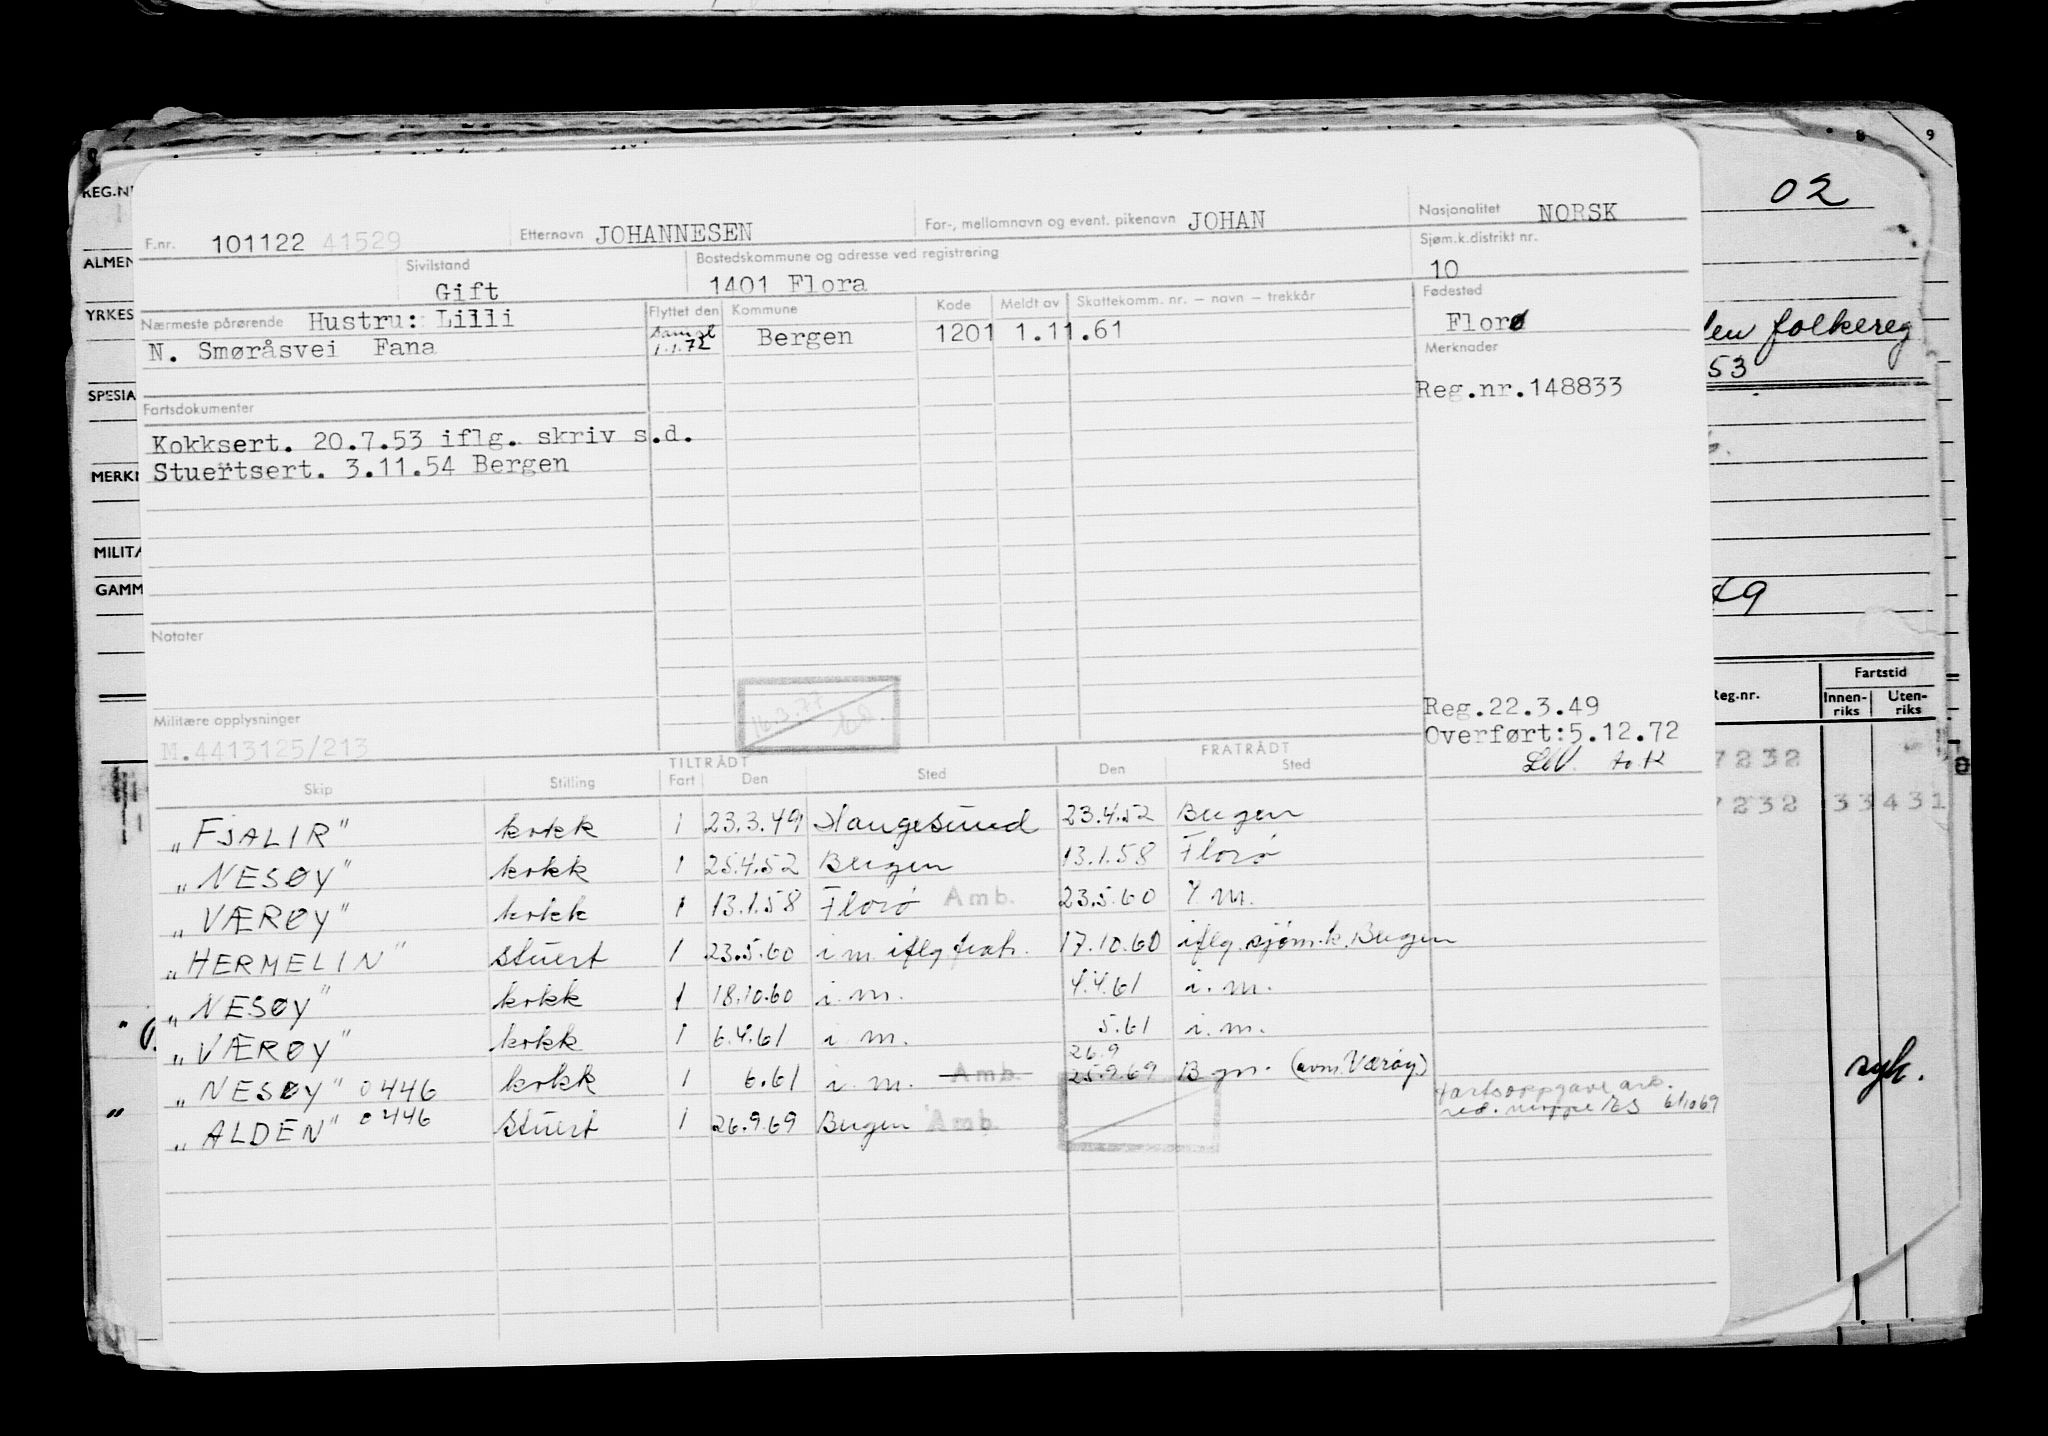 8 9
REG.N 02
F.nr. 101122 41529 Etternavn JOHANNESEN For-, mellomnavn og event. pikenavn JOHAN Nasjonalitet NORSK
ALMEN Sivilstand Gift Bostedskommune og adresse ved registrering 1401 Flora Sjøm.k.distrikt nr. 10
YRKES Nærmeste pårørende Hustru: Lilli Flyttet den Kommune Kode Meldt av Skattekomm. nr. – navn – trekkår Fødested
N. Smøråsvei Fana 1.1.72 Bergen 1201 1.11.61 Florø folkereg
Merknader 53
SPESIA Fartsdokumenter Reg.nr.148833
Kokksert. 20.7.53 iflg. skriv s.d.
MERK Stuertsert. 3.11.54 Bergen
MILIT
GAMM 49
Notater
Reg.nr. Fartstid
Innen-riks Uten-riks
Militære opplysninger Reg.22.3.49
M.4413125/213 Overført:5.12.72
TILTRÅDT FRATRÅDT
Skip Stilling Fart Den Sted Den Sted 7232
„FJALIR" kokk 1 23.3.49 Haugesund 23.4.52 Bergen 7232 33431
„NESØY" kokk 1 25.4.52 Bergen 13.1.58 Florø
„VÆRØY" kokk 1 13.1.58 Florø Amb. 23.5.60 i m.
„HERMELIN" stuert 1 23.5.60 i m. iflg fratr. 17.10.60 iflg. sjøm.k. Bergen
„NESØY" kokk 1 18.10.60 i. m. 4.4.61 i. m.
„VÆRØY" kokk 1 6.4.61 i m. 5.61 i. m.
26.9
„NESØY" 0446 kokk 1 6.61 i. m. Amb. 25.9.69 Bgn. (avm. Værøy) syk.
Fartsoppgave
6/10 69
„ALDEN" 0446 Stuert 1 26.9.69 Bergen Amb.